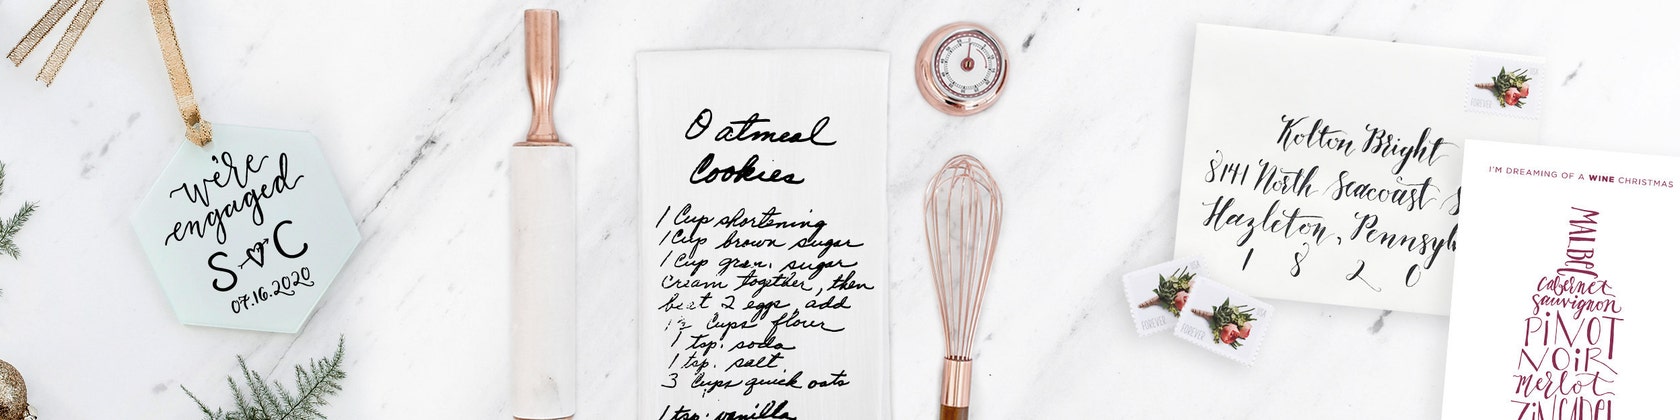 we're
engaged
S C
07.16.2020
Oatmeal
Cookies
1 Cup shortening
1 Cup brown sugar
1 Cup gran. sugar
Cream together, then
beat 2 eggs, add
1½ Cups flour
1 tsp. soda
1 tsp. salt
3 Cups quick oats
1 tsp. vanilla
Kolton Bright
8141 North Seacoast S
Hazleton, Pennsylv
1 8 2 0
FOREVER
FOREVER
FOREVER USA
I'M DREAMING OF A WINE CHRISTMAS
MALBEC
cabernet
sauvignon
PINOT
NOIR
merlot
ZINFANDEL